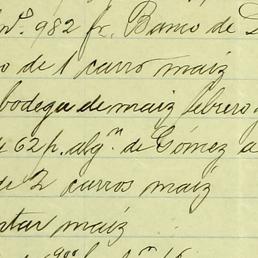 nº. 982 fr. Banco de
o de 1 carro maíz
bodega de maiz febrero
62 p. algⁿ. de Gómez a
de 2 carros maíz
ntar maíz